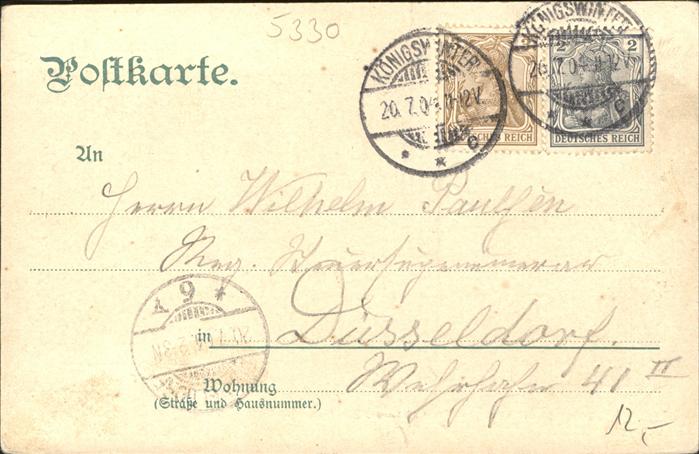 5330
Postkarte.
KÖNIGSWINTER
20.7.04 11-12V.
* * c
DEUTSCHES REICH
KÖNIGSWINTER
20.7.04 11-12V.
* * c
2 2
DEUTSCHES REICH
An
Herrn Wilhelm Paulsen
Reg.
in Düsseldorf.
Wohnung
41 II
(Straße und Hausnummer.)
12,-